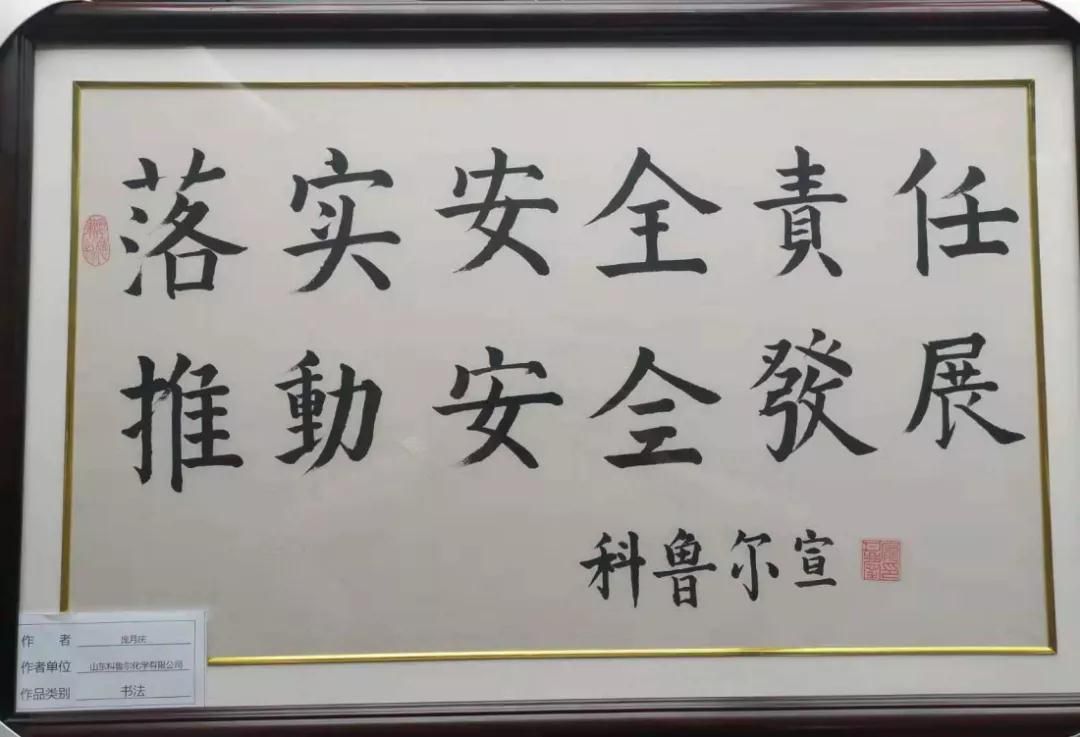 落实安全責任
推動安全發展
科鲁尔宣
作 者 庞月庆
作者单位 山东科鲁尔化学有限公司
作品类别 书法